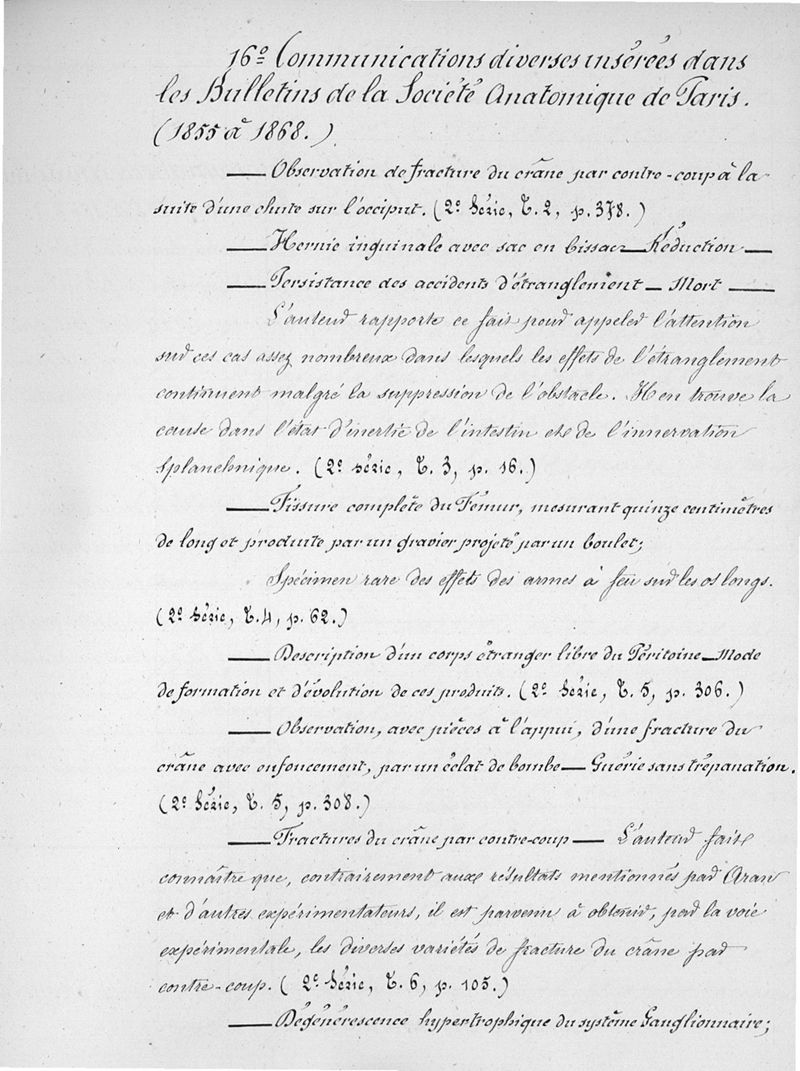 16º Communications diverses insérées dans
les Bulletins de la Société Anatomique de Paris.
(1855 à 1868.)
— Observation de fracture du crâne par contre-coup à la
suite d'une chute sur l'occiput. (2e Série, T. 2, p. 378.)
— Hernie inguinale avec sac en bissac — Réduction —
— Persistance des accidents d'étranglement — Mort —
L'auteur rapporte ce fait pour appeler l'attention
sur ces cas assez nombreux dans lesquels les effets de l'étranglement
continuent malgré la suppression de l'obstacle. Il en trouve la
cause dans l'état d'inertie de l'intestin et de l'innervation
splanchnique. (2e série, T. 3, p. 16.)
— Fissure complète du Fémur, mesurant quinze centimètres
de long et produite par un gravier projeté par un boulet;
Spécimen rare des effets des armes à feu sur les os longs.
(2e Série, T. 4, p. 62.)
— Description d'un corps étranger libre du Péritoine — Mode
de formation et d'évolution de ces produits. (2e Série, T. 5, p. 306.)
— Observation, avec pièces à l'appui, d'une fracture du
crâne avec enfoncement, par un éclat de bombe — Guérie sans trépanation.
(2e Série, T. 5, p. 308.)
— Fractures du crâne par contre-coup — L'auteur fait
connaître que, contrairement aux résultats mentionnés par Aran
et d'autres expérimentateurs, il est parvenu à obtenir, par la voie
expérimentale, les diverses variétés de fracture du crâne par
contre-coup. (2e Série, T. 6, p. 105.)
— Dégénérescence hypertrophique du système Ganglionnaire;